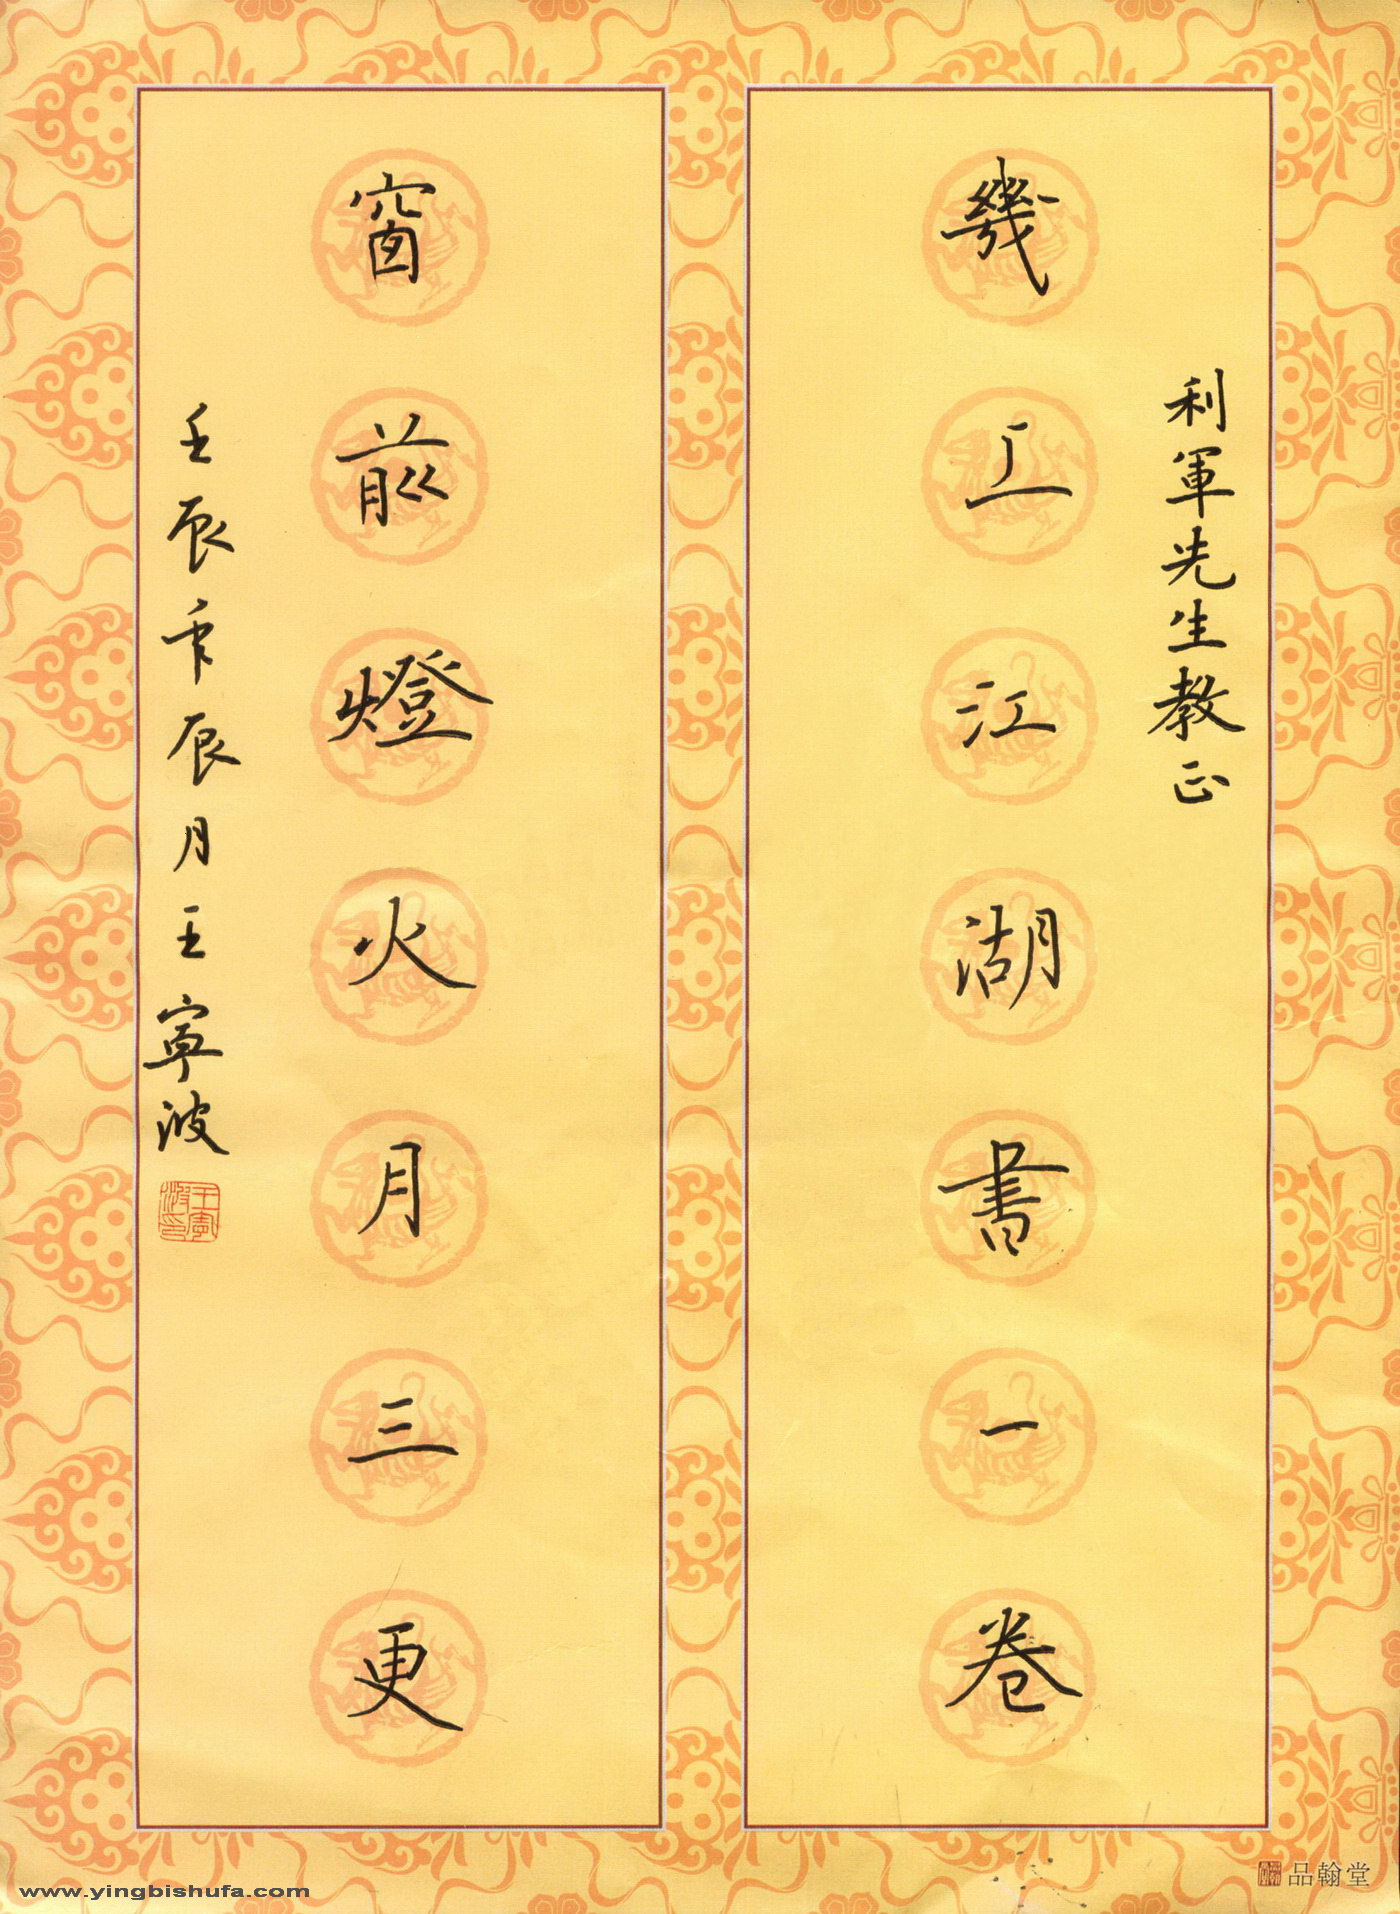 利軍先生教正
幾上江湖書一卷
窗前燈火月三更
壬辰年辰月王寧波
王寧波印
品翰堂
www.yingbishufa.com